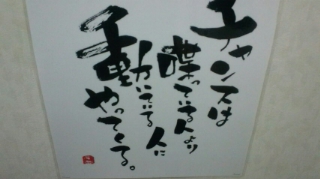 チャンスは
喋っている人より
動いている人に
やってくる。